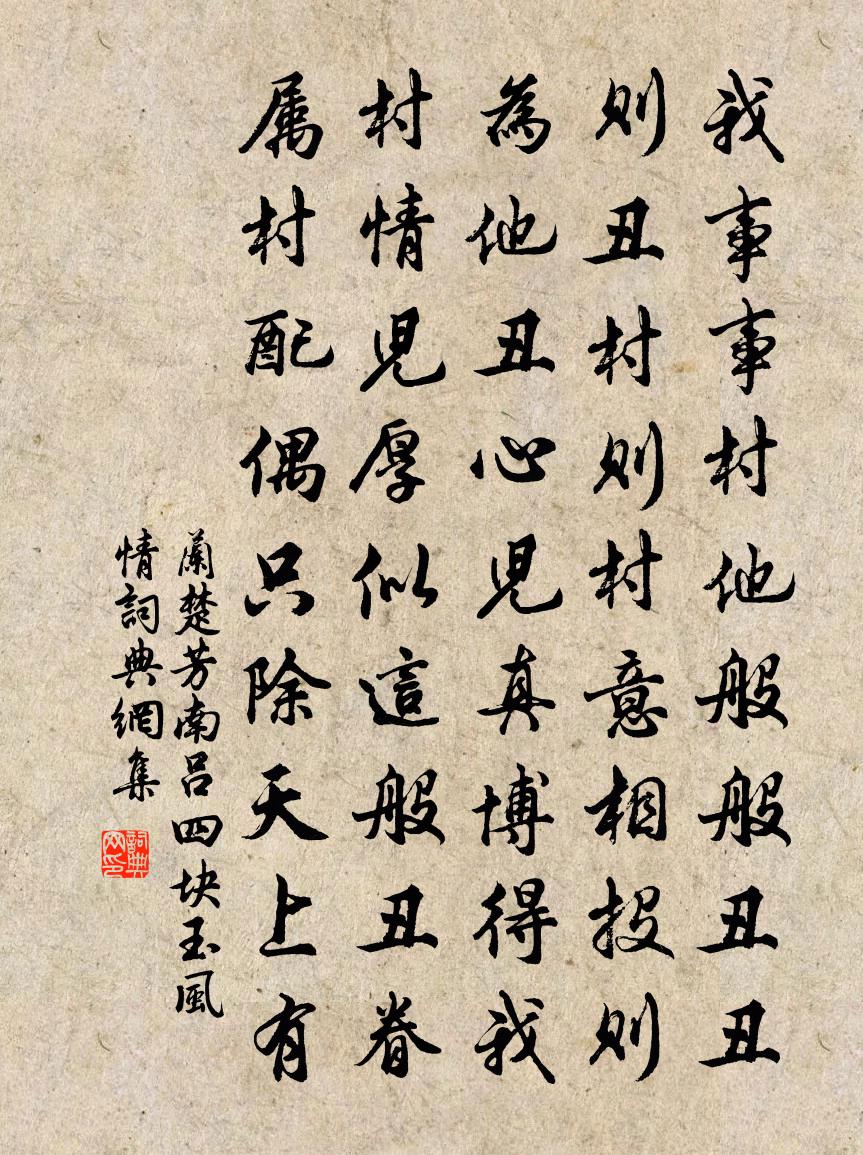 我事事村他般般丑丑
則丑村則村意相投則
為他丑心兒真博得我
村情兒厚似這般丑眷
属村配偶只除天上有
蘭楚芳南吕四块玉風
情詞典網集
詞典网印